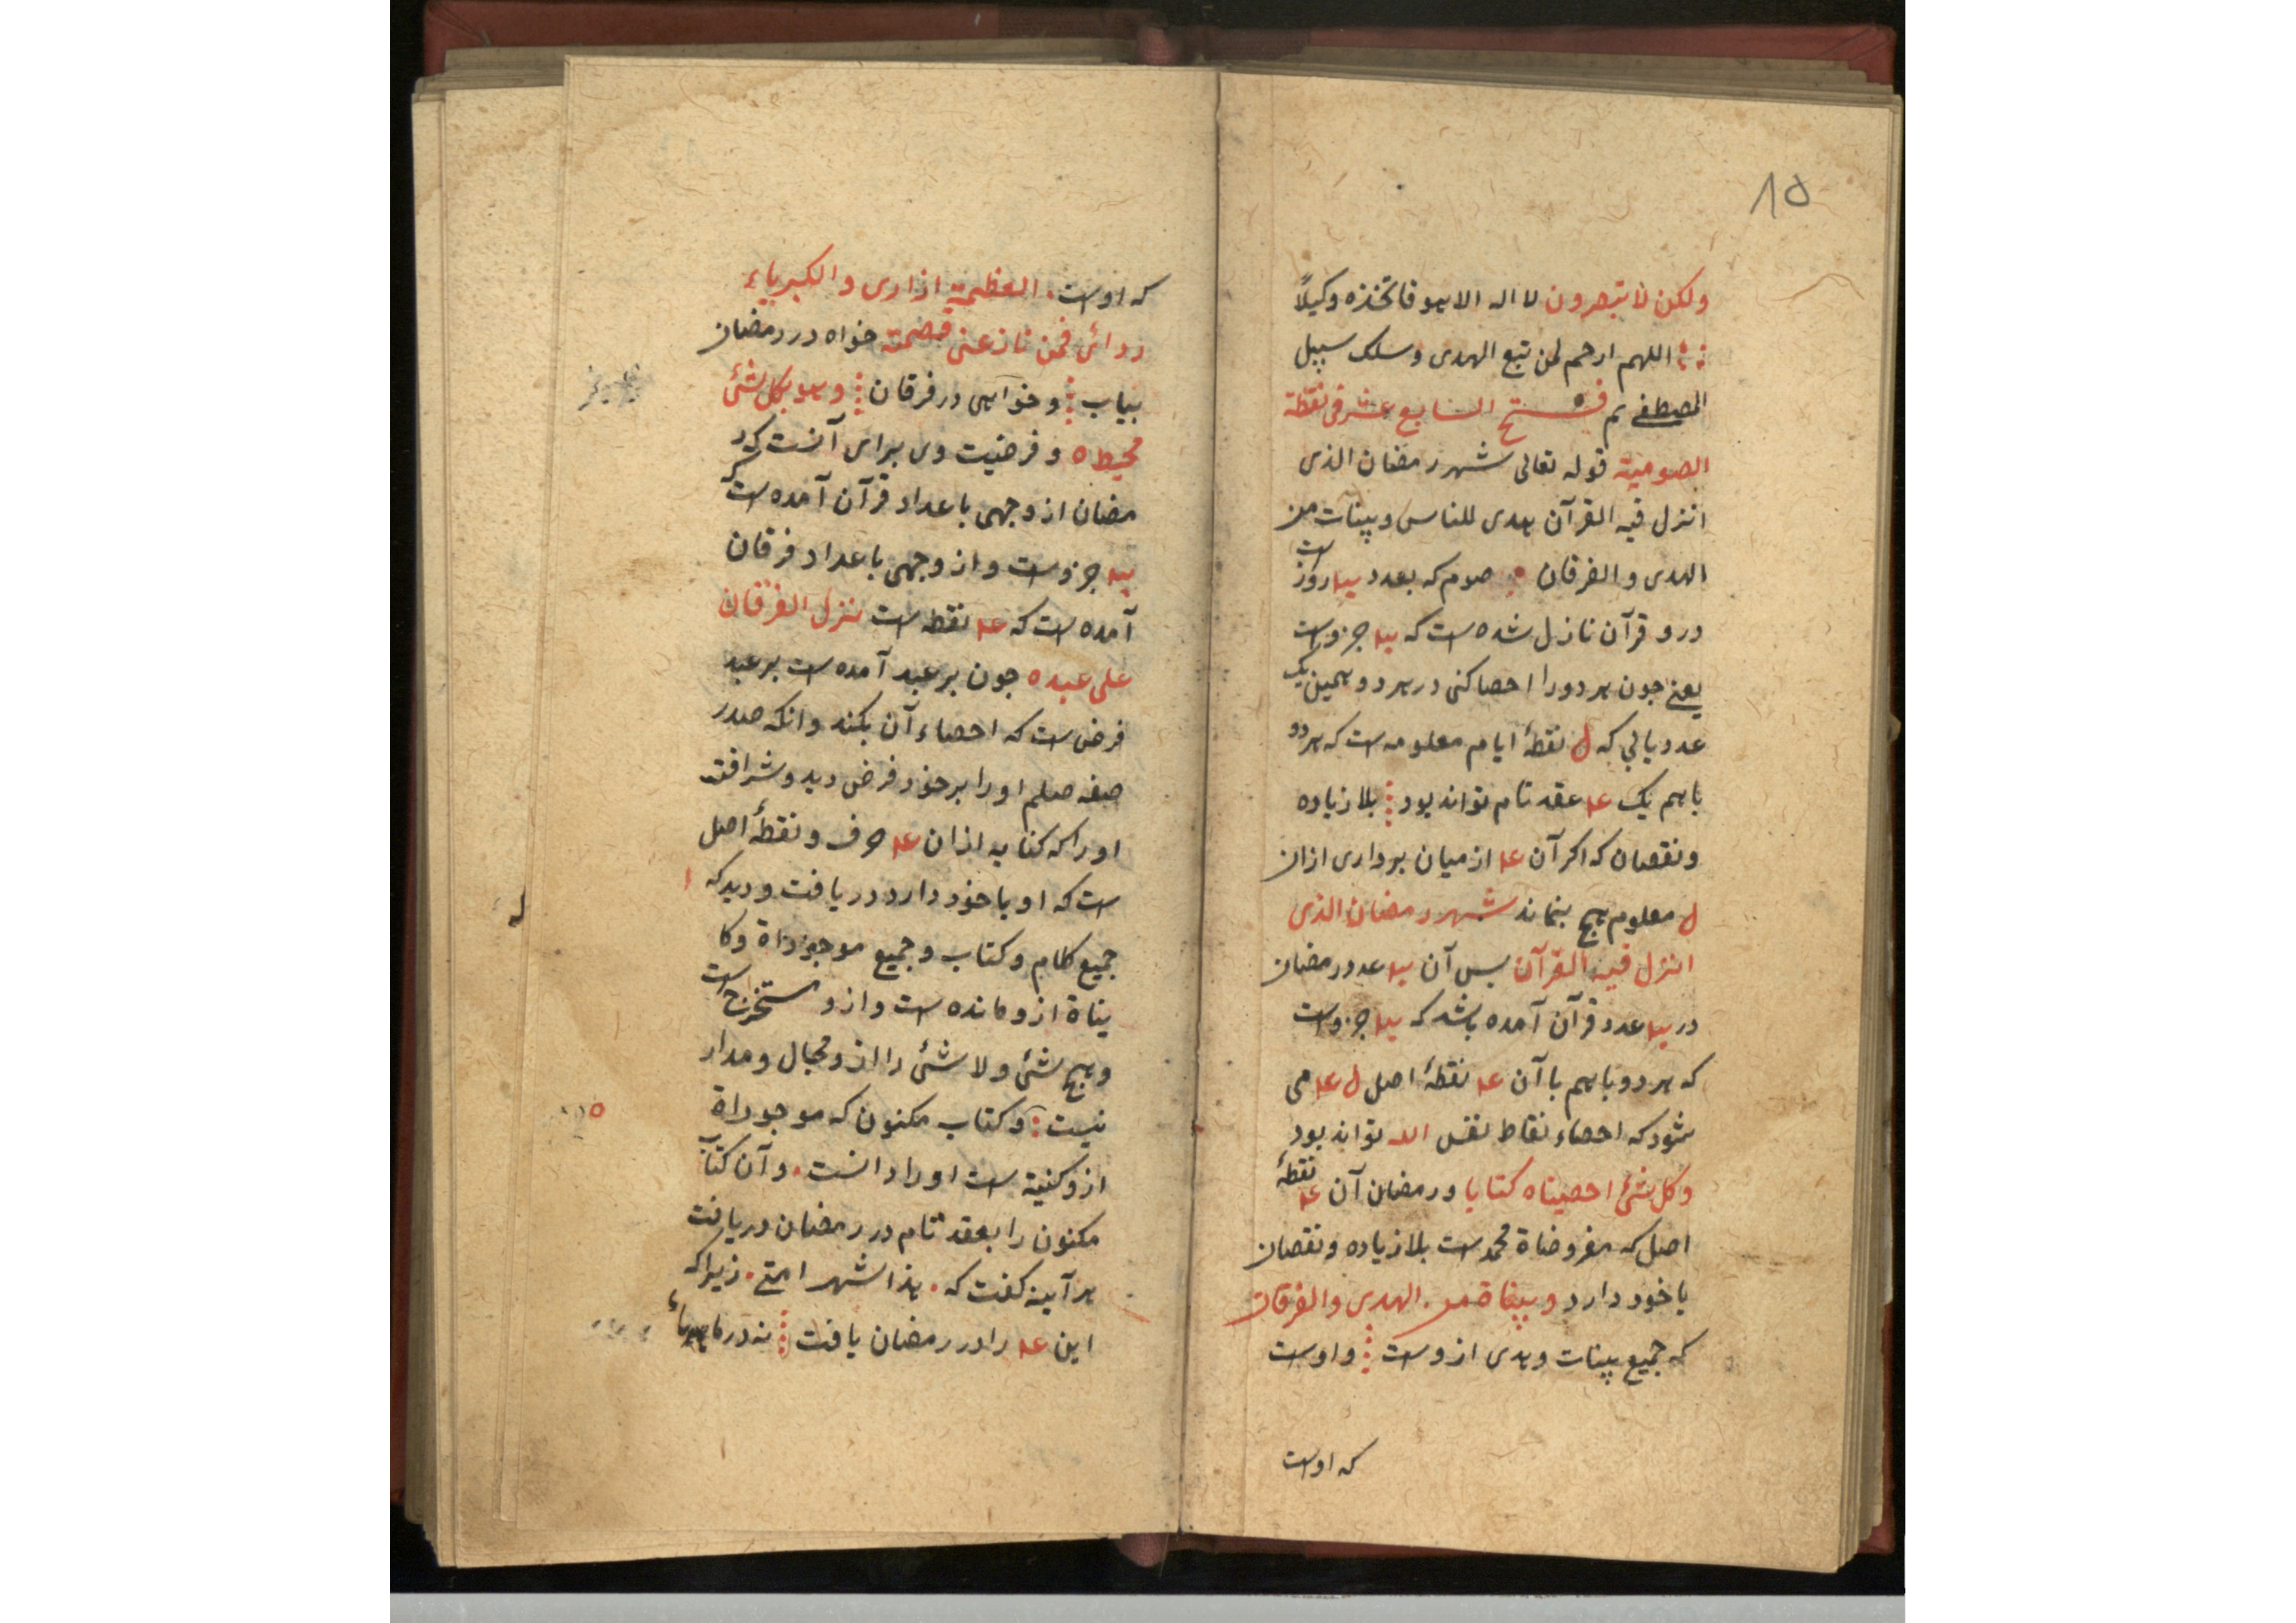 ۸۵
ولکن لا تبصرون لا اله الا هو فاتخذه وکیلاً
اللهم ارحم لمن تبع الهدی و سلک سبیل
المصطفی م فتح السابع عشر فی نقطة
الصومیة قوله تعالی شهر رمضان الذی
انزل فیه القرآن هدی للناس و بینات من
الهدی و الفرقان صوم که بعدد روز است
درو قرآن نازل شده است که جزو است
یعنی جون هر دو را احصا کنی در هر دو همین یک
عدد یابی که ل نقطهٔ ایام معلومه است که هر دو
باهم یک عقد تام تواند بود بلا زیاده
و نقصان که اکر آن از میان برداری ازان
ل معلوم هیچ بنماند شهر رمضان الذی
انزل فیه القرآن بس آن عدد رمضان
در عدد قرآن آمده باشد که جزو است
که هر دو باهم با آن نقطهٔ اصل ل می
شود که احصاء نقاط نفس الله تواند بود
و کل شیٔ احصیناه کتابا و رمضان آن نقطهٔ
اصل که مفروضاة محمد است بلا زیاده و نقصان
با خود دارد و بیناة من الهدی و الفرقان
که جمیع بینات و هدی ازوست و اوست
که اوست
که اوست العظمة ازاری و الکبریاء
ردائی فمن نازعنی قصمته خواه در رمضان
بیاب و خواهی در فرقان و هو بکل شیٔ
محیط ه و فرضیت وی برای آنست که ر
مضان از وجهی با عداد قرآن آمده است که
جزو است و از وجهی با عداد فرقان
آمده است که نقطه است نزل الفرقان
علی عبده جون بر عبد آمده است بر عبد
فرض است که احصاء آن بکند و انکه صدر
صفه صلم او را بر خود فرض دید و شرافت
او را که کنایه ازان حرف و نقطهٔ اصل
است که او با خود دارد دریافت و دید که
جمیع کلام و کتاب و جمیع موجوداة و کا
یناة ازو مانده است و ازو مستخرج است
و هیچ شیٔ و لا شیٔ را ازو مجال و مدار
نیست و کتاب مکنون که موجوداة
ازو است او را دانست و آن کتاب
مکنون را بعقد تام در رمضان دریافت
هر آینه کفت که هذا شهر امتی زیرا که
این را در رمضان یافت نه در